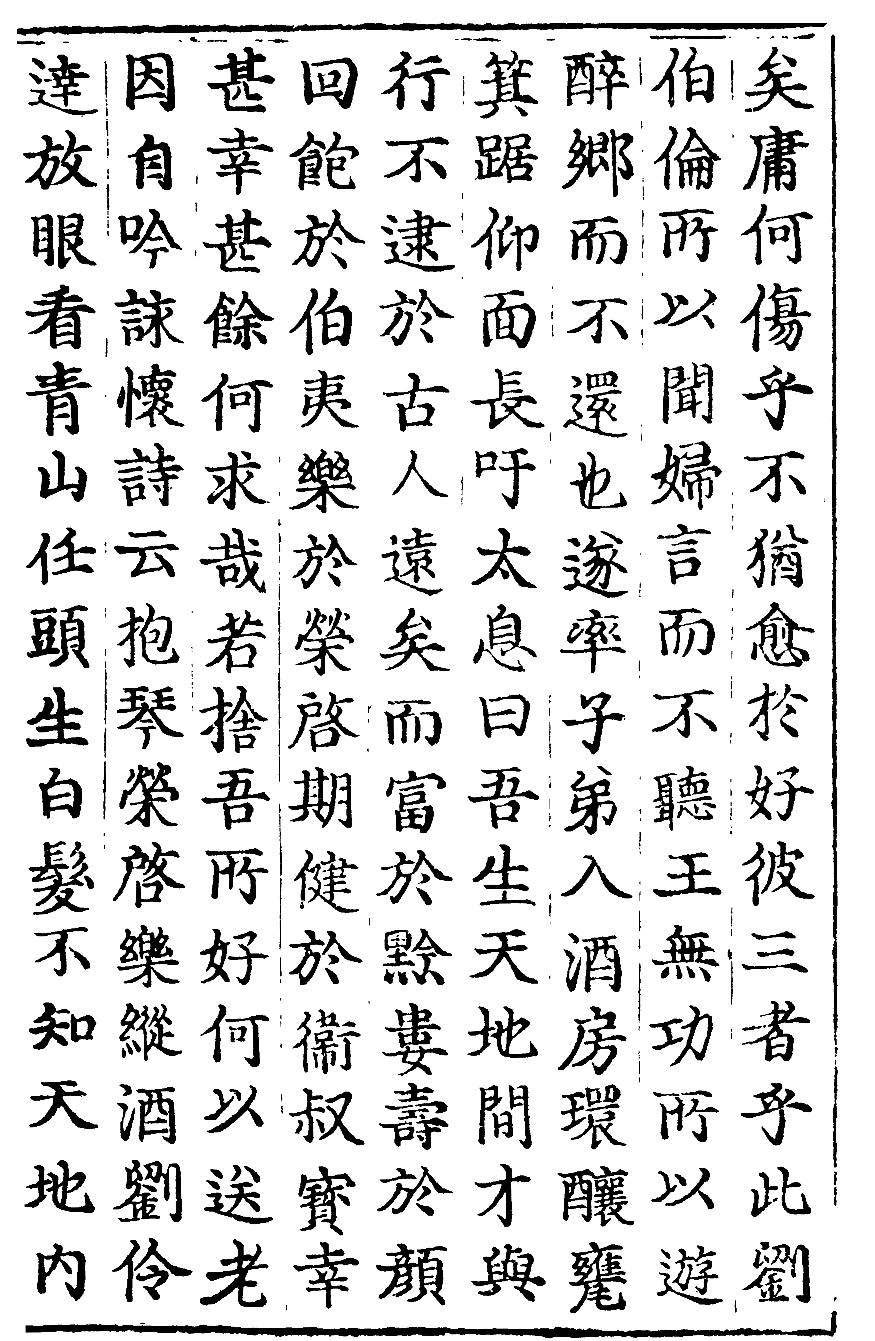 矣庸何傷乎不猶愈於好彼三者乎此劉
伯倫所以聞婦言而不聽王無功所以遊
醉鄉而不還也遂率子弟入酒房環釀甕
箕踞仰面長吁太息曰吾生天地間才與
行不逮於古人遠矣而富於黔婁壽於顏
回飽於伯夷樂於榮啓期健於衞叔寶幸
甚幸甚餘何求哉若捨吾所好何以送老
因自吟詠懷詩云抱琴榮啓樂縱酒劉伶
達放眼看青山任頭生白髮不知天地內